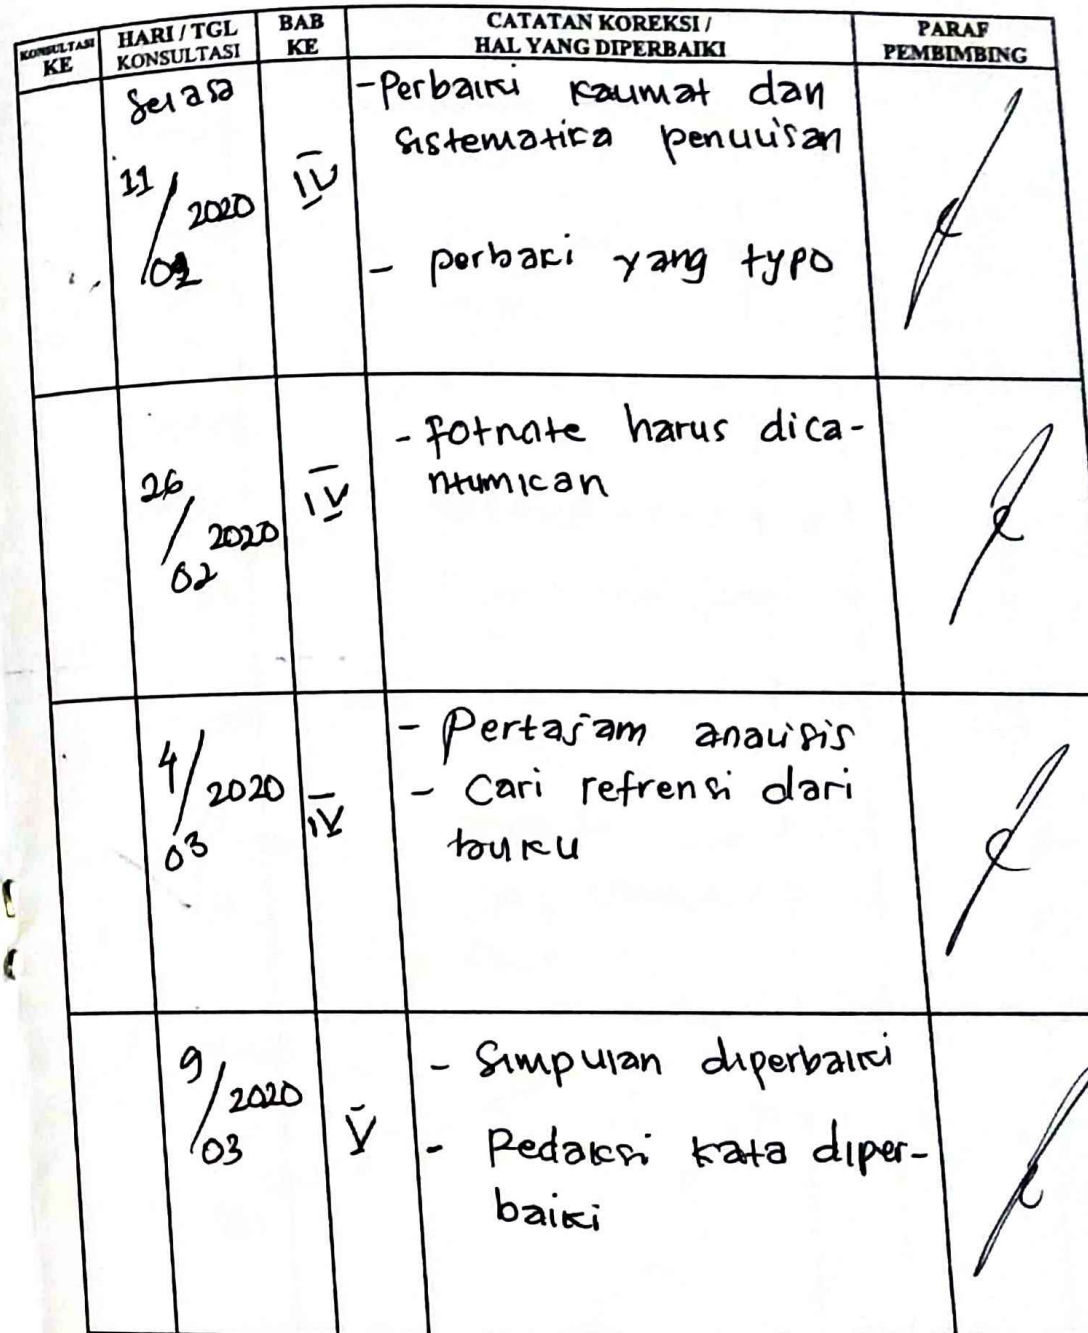 KONSULTASI KE
HARI / TGL KONSULTASI
BAB KE
CATATAN KOREKSI / HAL YANG DIPERBAIKI
PARAF PEMBIMBING
Selasa
11/02 2020
IV
- Perbaiki kalimat dan
sistematika penulisan
- perbaki yang typo
26/02 2020
IV
- fotnote harus dica-
ntumkan
4/03 2020
IV
- Pertajam analisis
- Cari refrensi dari
buku
9/03 2020
V
- Simpulan diperbaiki
- Redaksi kata diper-
baiki